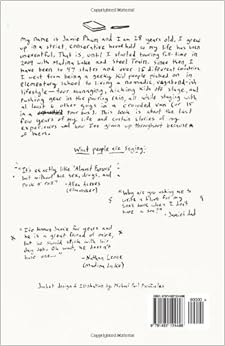 My name is Jamie Pham and I am 28 years old. I grew
up in a strict, conservative household so my life has been
uneventful. That is, until I started touring full-time in
2009 with Madina Lake and Steel Train. Since then I
have been to 47 states and over 15 different countries.
I went from being a geeky kid people picked on in
elementary school to living a nomadic, vagabond-ish
lifestyle - tour managing, kicking kids off stage, and
pushing gear in the pouring rain, all while staying with
at least 6 other guys in a crowded van for 15
in a tour bus. This book is about the last
few years of my life and certain stories of my
experiences and how I've grown up throughout because
of them.
What people are saying:
"It's exactly like 'Almost Famous'
but without the sex, drugs, and
rock n roll."
"Why are you asking me to
write a blurb for my
son's book when I don't
have a son?" - Jamie's Dad
"I've known Jamie for years and
he is a great friend of mine,
but he should stick with his
day job. Oh wait, he doesn't
have one..."
- Nathan Leone
(Madina Lake)
Jacket design & illustration by Michael
90000